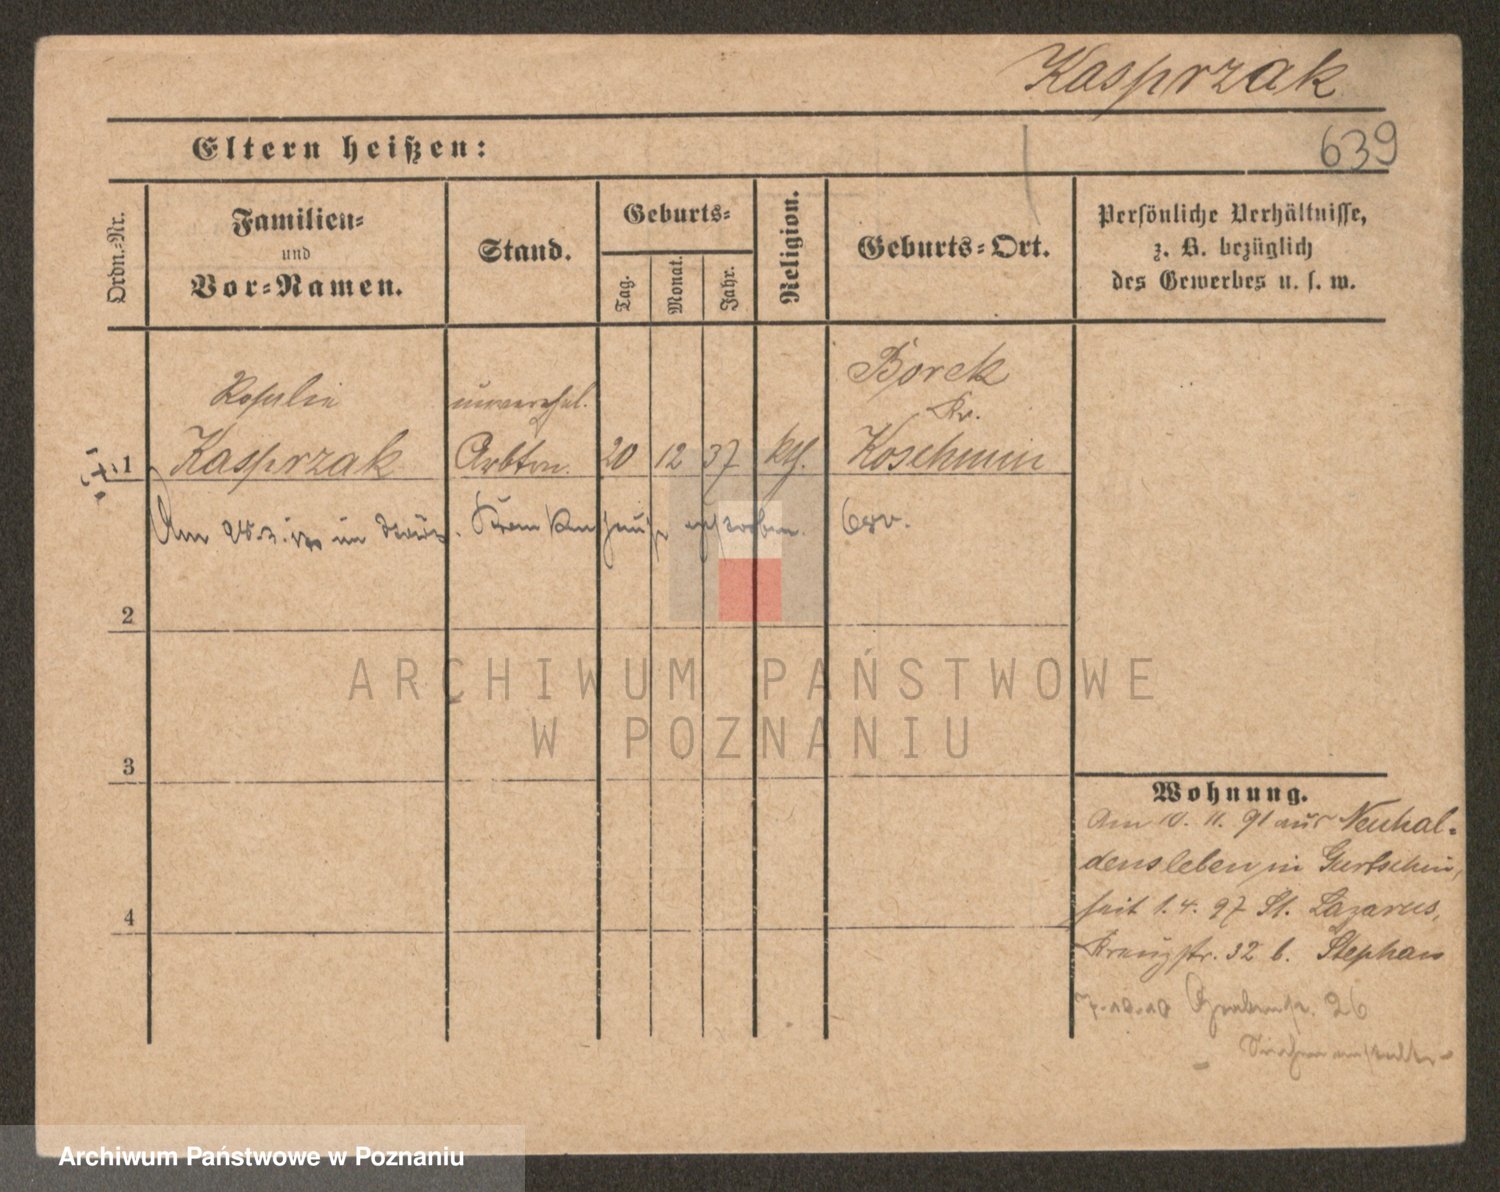 Kasprzak
639
Eltern heißen:
Ordn.-Nr.
Familien-
und
Vor-Namen.
Stand.
Geburts-
Tag.
Monat.
Jahr.
Religion.
Geburts-Ort.
Persönliche Verhältnisse,
z. B. bezüglich
des Gewerbes u. s. w.
Rosalie
unverehel.
Borek
Kr.
1
Kasprzak
Arbtrn.
20
12
37
kth.
Koschmin
Am im Krankenhause verstorben.
2
3
4
Wohnung.
Am 10. 11. 91 aus Neuhal-
densleben in Gurtschin,
seit 1. 4. 97 St. Lazarus,
Kreuzstr. 32 b. Stephan
7.10.10 Grabenstr. 26
ARCHIWUM PAŃSTWOWE
W POZNANIU
Archiwum Państwowe w Poznaniu